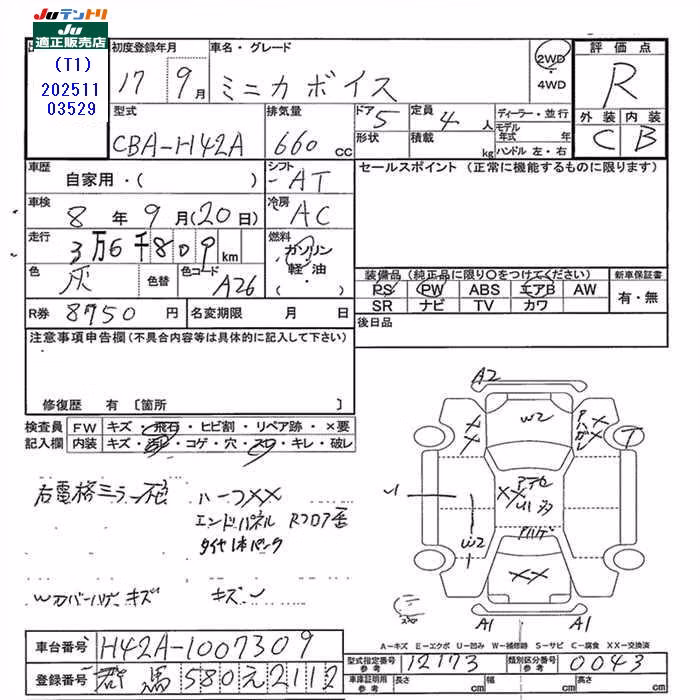 JUテントリ
JU
適正販売店
(T1)
202511
03529
初度登録年月
17 9月
車名・グレード
ミニカ ボイス
2WD
・
4WD
評価点
R
外装 内装
C B
型式
CBA-H42A
排気量
660 cc
ドア 5
形状
定員 4 人
積載 kg
ディーラー・並行
モデル年式 年
ハンドル 左・右
車歴
自家用・( )
シフト
AT
セールスポイント (正常に機能するものに限ります)
車検
8 年 9 月(20日)
冷房
AC
走行
3万6千809 km
燃料
ガソリン
軽油
( )
色
灰
色替
色コード
A26
装備品(純正品に限り○をつけてください)
新車保証書
PS PW ABS エアB AW
SR ナビ TV カワ
有・無
R券 8750 円
名変期限 月 日
後日品
注意事項申告欄(不具合内容等は具体的に記入して下さい)
修復歴 有 〔箇所 〕
検査員記入欄
FW キズ・飛石・ヒビ割・リペア跡・×要
内装 キズ・汚レ・コゲ・穴・スレ・キレ・破レ
右電格ミラー
ハーフ××
エンドパネル Rフロア
タイヤ1本パンク
キズ
キズ
A2
W2
××
××
T
××
W2
××
A1 A1
A-キズ E-エクボ U-凹み W-補修跡 S-サビ C-腐食 XX-交換済
車台番号 H42A-1007309
登録番号 群馬580え2112
型式指定番号 参考 12173
類別区分番号 参考 0043
車庫証明用 参考 長さ cm 幅 cm 高さ cm